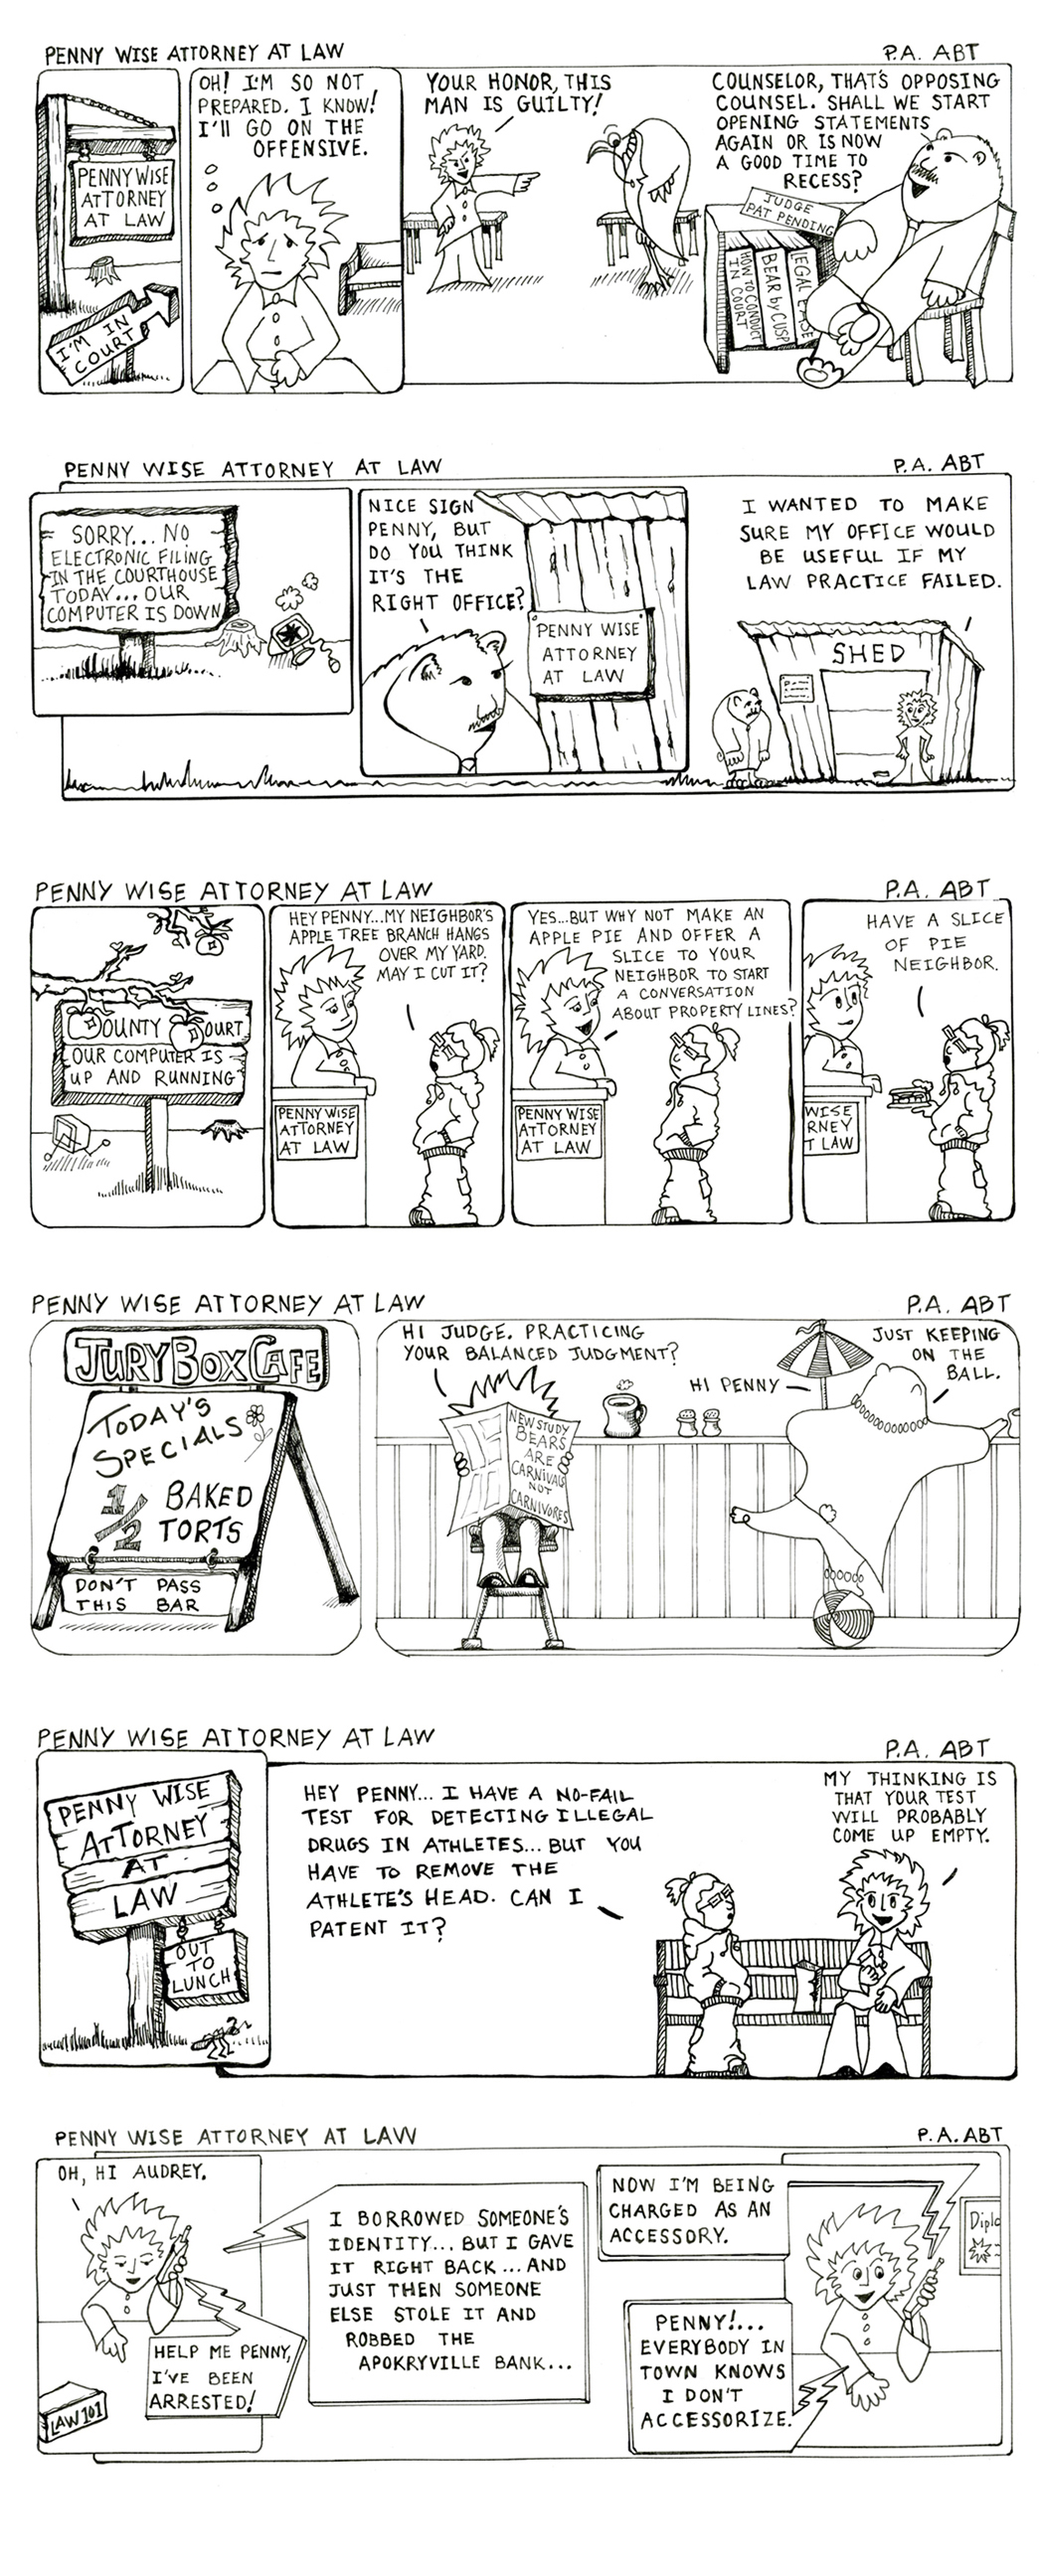 PENNY WISE ATTORNEY AT LAW
P.A. ABT
PENNY WISE
ATTORNEY
AT LAW
I'M IN
COURT
OH! I'M SO NOT
PREPARED. I KNOW!
I'LL GO ON THE
OFFENSIVE.
YOUR HONOR, THIS
MAN IS GUILTY!
COUNSELOR, THAT'S OPPOSING
COUNSEL. SHALL WE START
OPENING STATEMENTS
AGAIN OR IS NOW
A GOOD TIME TO
RECESS?
JUDGE
PAT PENDING
HOW TO CONDUCT
IN COURT
BEAR by CUSP
LEGAL EASE
PENNY WISE ATTORNEY AT LAW
P.A. ABT
SORRY... NO
ELECTRONIC FILING
IN THE COURTHOUSE
TODAY... OUR
COMPUTER IS DOWN
NICE SIGN
PENNY, BUT
DO YOU THINK
IT'S THE
RIGHT OFFICE?
PENNY WISE
ATTORNEY
AT LAW
I WANTED TO MAKE
SURE MY OFFICE WOULD
BE USEFUL IF MY
LAW PRACTICE FAILED.
SHED
PENNY WISE ATTORNEY AT LAW
P.A. ABT
COUNTY COURT
OUR COMPUTER IS
UP AND RUNNING
HEY PENNY...MY NEIGHBOR'S
APPLE TREE BRANCH HANGS
OVER MY YARD.
MAY I CUT IT?
PENNY WISE
ATTORNEY
AT LAW
YES...BUT WHY NOT MAKE AN
APPLE PIE AND OFFER A
SLICE TO YOUR
NEIGHBOR TO START
A CONVERSATION
ABOUT PROPERTY LINES?
PENNY WISE
ATTORNEY
AT LAW
HAVE A SLICE
OF PIE
NEIGHBOR.
WISE
RNEY
T LAW
PENNY WISE ATTORNEY AT LAW
P.A. ABT
JURY BOX CAFE
TODAY'S
SPECIALS
1/2 BAKED
TORTS
DON'T PASS
THIS BAR
HI JUDGE. PRACTICING
YOUR BALANCED JUDGMENT?
HI PENNY
JUST KEEPING
ON THE
BALL.
NEW STUDY
BEARS
ARE
CARNIVALS
NOT
CARNIVORES
PENNY WISE ATTORNEY AT LAW
P.A. ABT
PENNY WISE
ATTORNEY
AT
LAW
OUT
TO
LUNCH
HEY PENNY... I HAVE A NO-FAIL
TEST FOR DETECTING ILLEGAL
DRUGS IN ATHLETES... BUT YOU
HAVE TO REMOVE THE
ATHLETE'S HEAD. CAN I
PATENT IT?
MY THINKING IS
THAT YOUR TEST
WILL PROBABLY
COME UP EMPTY.
PENNY WISE ATTORNEY AT LAW
P.A. ABT
OH, HI AUDREY.
HELP ME PENNY,
I'VE BEEN
ARRESTED!
LAW 101
I BORROWED SOMEONE'S
IDENTITY... BUT I GAVE
IT RIGHT BACK... AND
JUST THEN SOMEONE
ELSE STOLE IT AND
ROBBED THE
APOKRYVILLE BANK...
NOW I'M BEING
CHARGED AS AN
ACCESSORY.
PENNY!...
EVERYBODY IN
TOWN KNOWS
I DON'T
ACCESSORIZE.
Diplo